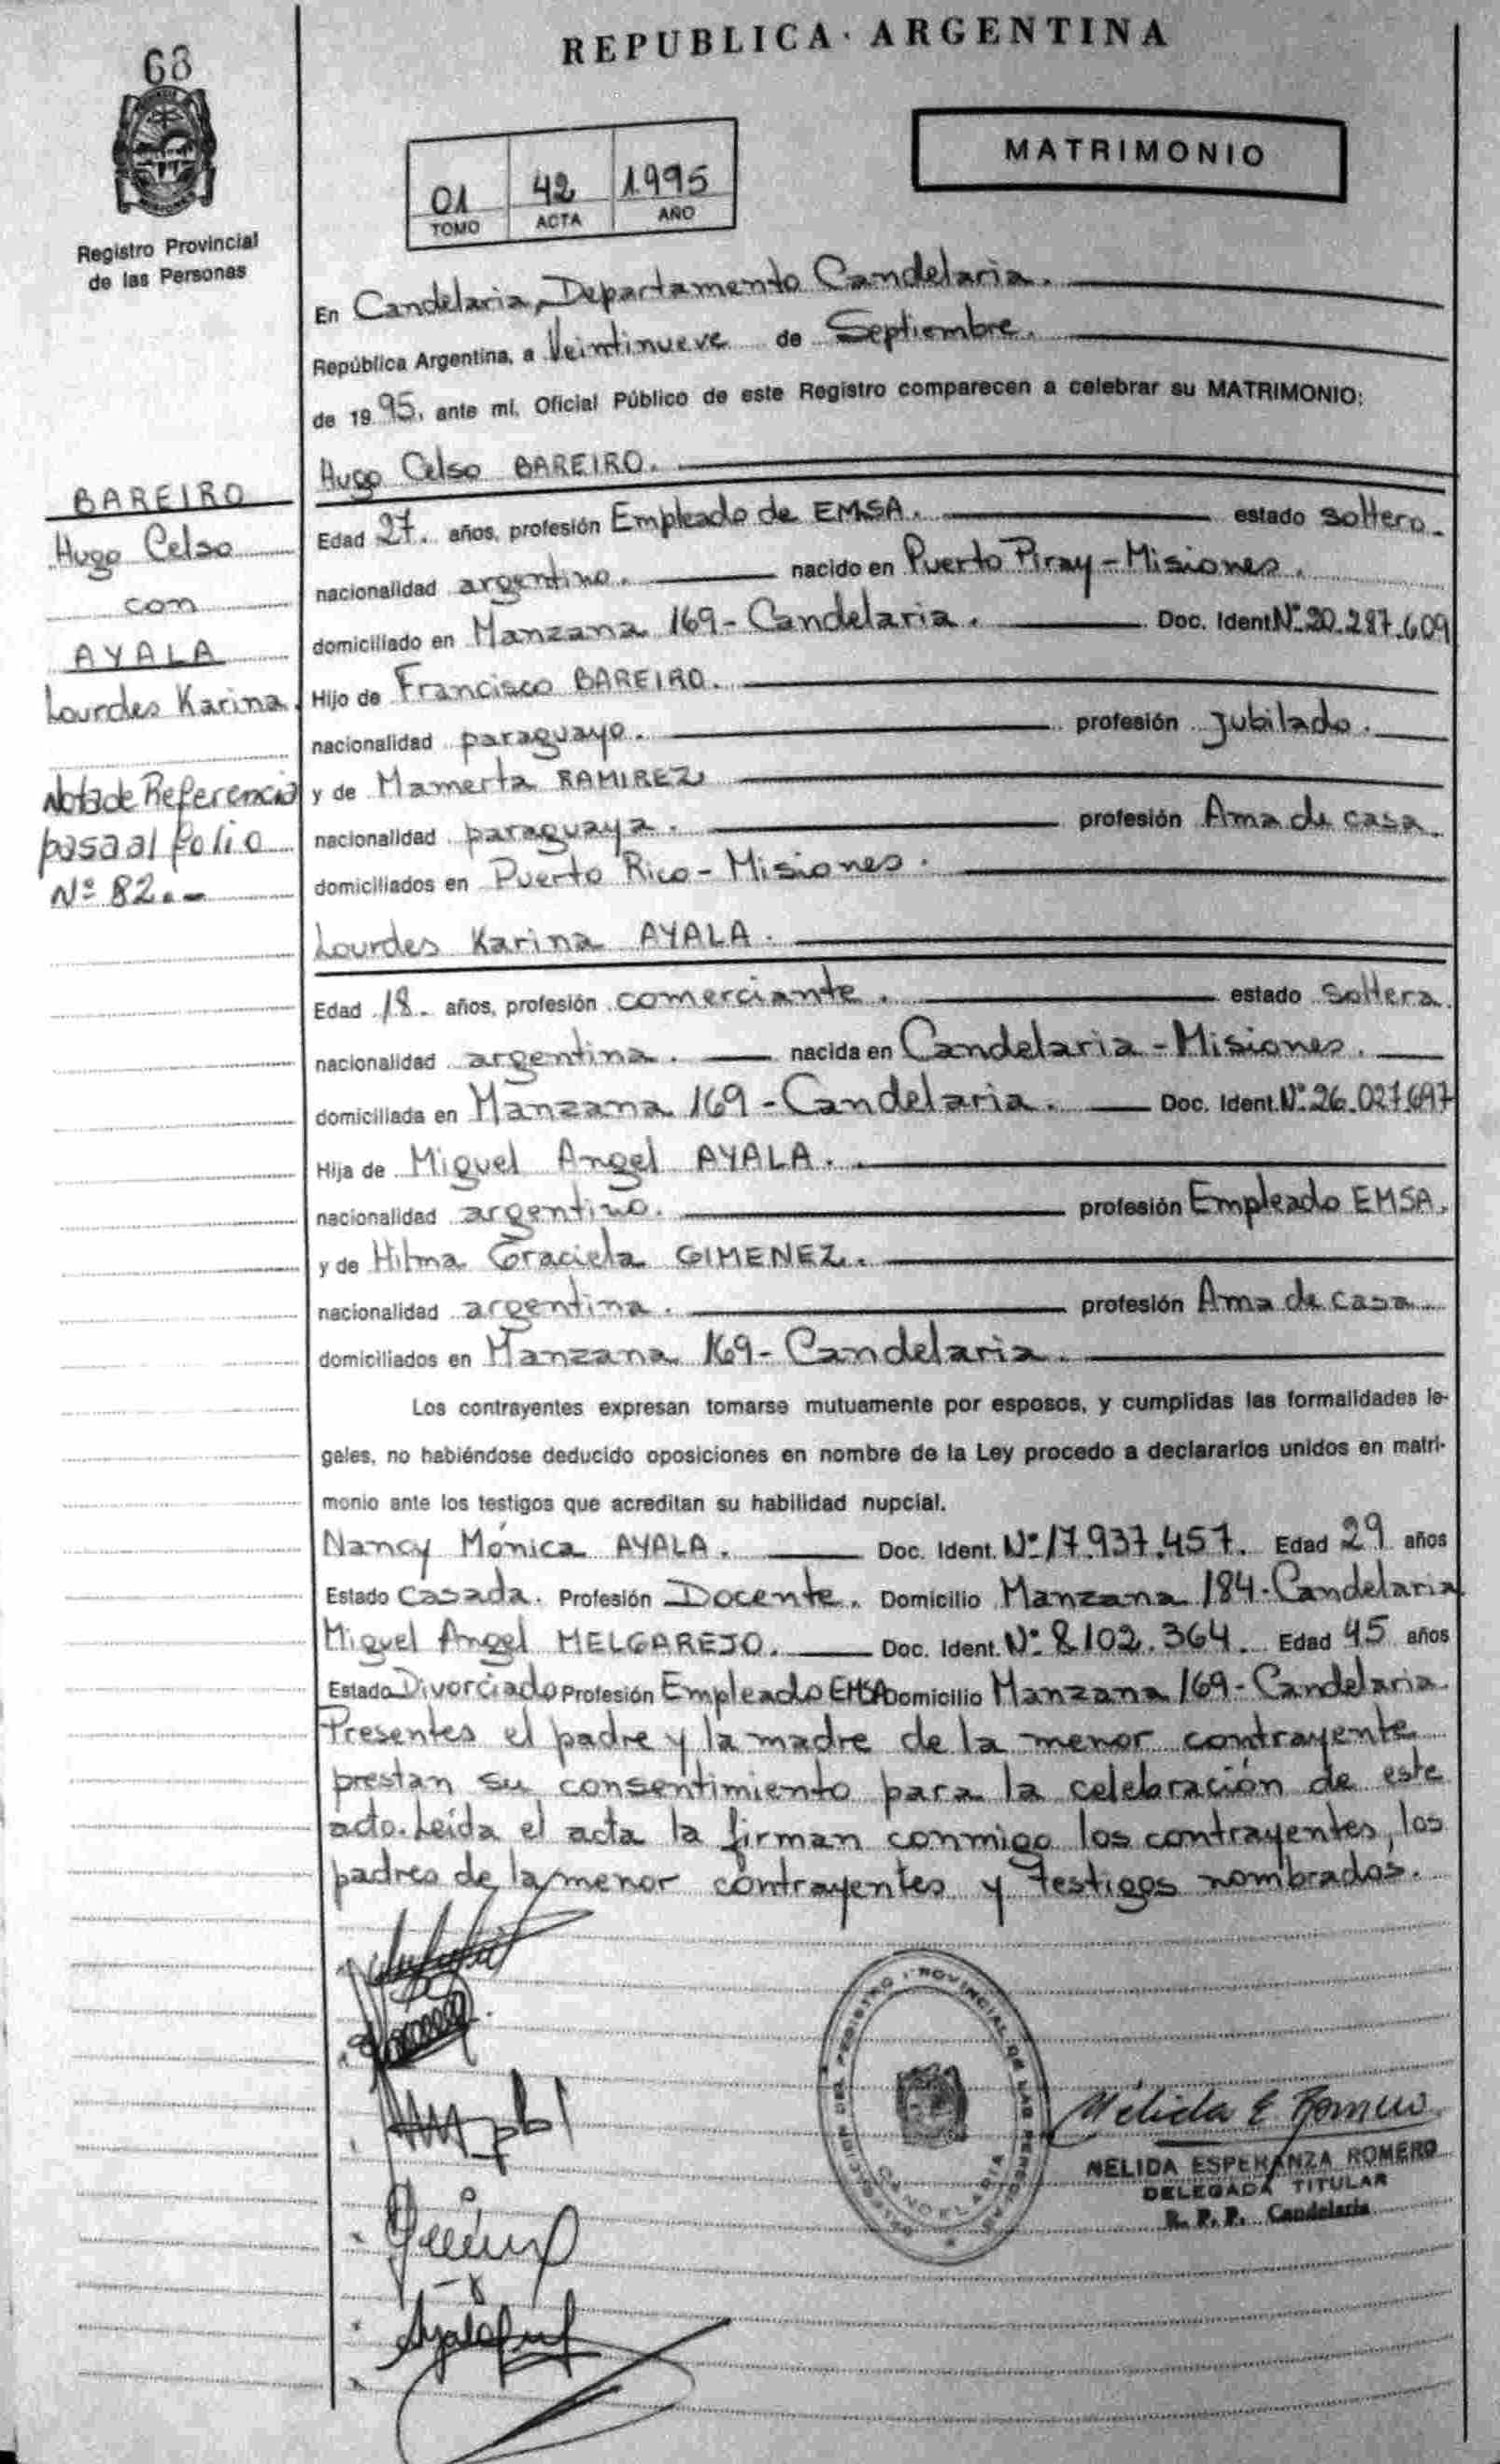 68
Registro Provincial
de las Personas
REPUBLICA ARGENTINA
MATRIMONIO
01 42 1995
TOMO ACTA AÑO
En Candelaria, Departamento Candelaria.
República Argentina, a Veintinueve de Septiembre.
de 1995, ante mí, Oficial Público de este Registro comparecen a celebrar su MATRIMONIO:
Hugo Celso BAREIRO.
Edad 27. años, profesión Empleado de EMSA. estado soltero.
nacionalidad argentino. nacido en Puerto Piray - Misiones.
domiciliado en Manzana 169 - Candelaria. Doc. Ident. Nº 20.287.609
Hijo de Francisco BAREIRO.
nacionalidad paraguayo. profesión Jubilado.
y de Mamerta RAMIREZ
nacionalidad paraguaya. profesión Ama de casa.
domiciliados en Puerto Rico - Misiones.
Lourdes Karina AYALA.
Edad 18. años, profesión comerciante. estado soltera.
nacionalidad argentina. nacida en Candelaria - Misiones.
domiciliada en Manzana 169 - Candelaria. Doc. Ident. Nº 26.027.697
Hija de Miguel Angel AYALA.
nacionalidad argentino. profesión Empleado EMSA.
y de Hilma Graciela GIMENEZ.
nacionalidad argentina. profesión Ama de casa.
domiciliados en Manzana 169 - Candelaria.
Los contrayentes expresan tomarse mutuamente por esposos, y cumplidas las formalidades le-
gales, no habiéndose deducido oposiciones en nombre de la Ley procedo a declararlos unidos en matri-
monio ante los testigos que acreditan su habilidad nupcial.
Nancy Mónica AYALA. Doc. Ident. Nº 17.937.457. Edad 29 años
Estado Casada. Profesión Docente. Domicilio Manzana 184 - Candelaria
Miguel Angel MELGAREJO. Doc. Ident. Nº 8102.364. Edad 45 años
Estado Divorciado Profesión Empleado EMSA Domicilio Manzana 169 - Candelaria.
Presentes el padre y la madre de la menor contrayente
prestan su consentimiento para la celebración de este
acto. Leída el acta la firman conmigo los contrayentes, los
padres de la menor contrayentes y testigos nombrados.
BAREIRO
Hugo Celso
con
AYALA
Lourdes Karina.
Nota de Referencia
pasa al folio
Nº 82.-
DELEGACION DEL REGISTRO PROVINCIAL DE LAS PERSONAS
CANDELARIA
Nélida E. Romero
NELIDA ESPERANZA ROMERO
DELEGADA TITULAR
R. P. P. Candelaria